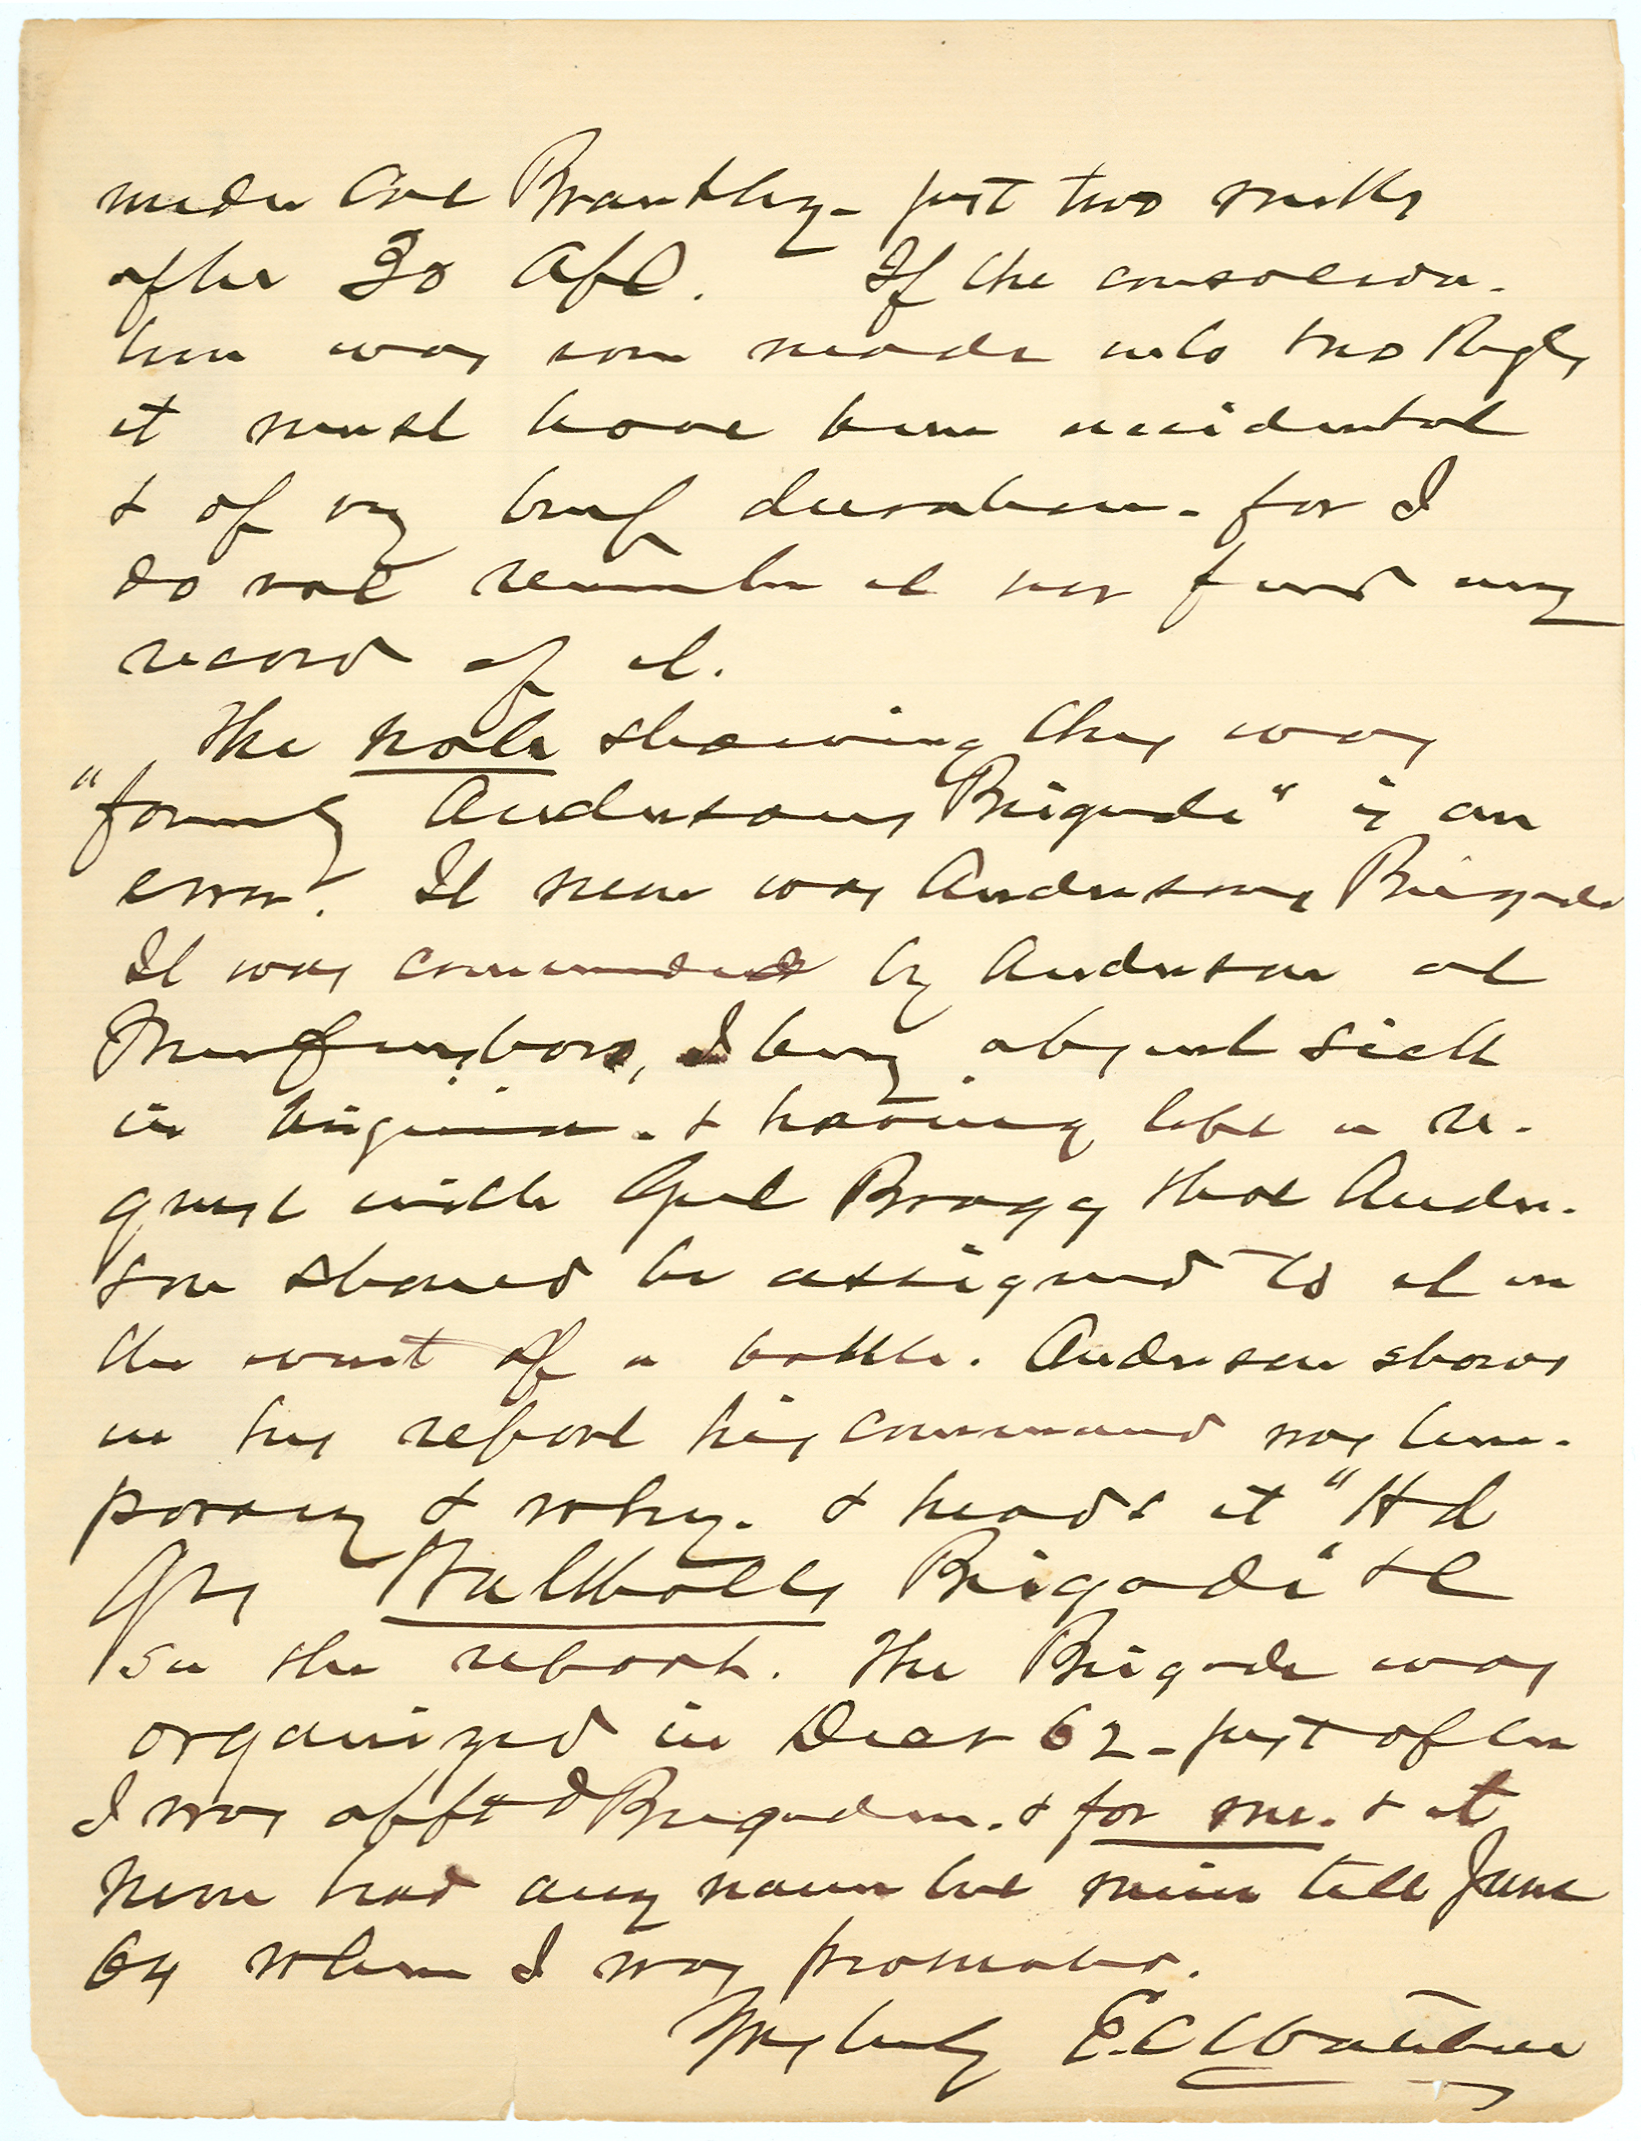 under Col Brantley - just two weeks
after 30 Apl. If the consolida-
tion was ever made into two Regts
it must have been accidental
& of very brief duration - for I
do not remember it nor find any
record of it.
The note showing they was
"formerly Andersons Brigade" is an
error. It never was Andersons Brigade
It was commanded by Anderson at
Murfreesboro, I being absent sick
in Virginia - & having left a re-
quest with Genl Bragg that Ander-
son should be assigned to it in
the event of a battle. Anderson shows
in his report his command was tem-
porary & why - & heads it "Hd
Qrs Walthalls Brigade" &c
See the report. The Brigade was
organized in Decr 62 - just after
I was apptd Brigadier - & for me - & it
never had any name but mine till June
64 when I was promoted.
Yrs truly E.C Walthall